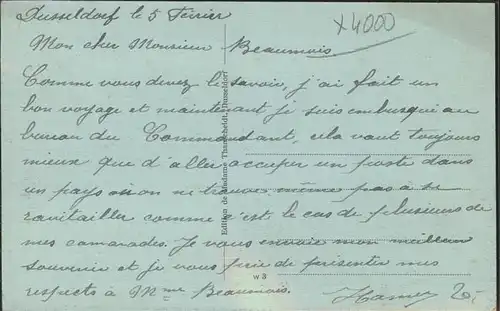 Dusseldorf le 5 Fevrier
x4000
Mon cher Monsieur Beaumois
Comme vous devez le savoir, j'ai fait un
bon voyage et maintenant je suis embusqué au
bureau du Commandant, cela vaut toujours
mieux que d'aller occuper un poste dans
un pays où on ne trouve même pas à se
ravitailler comme c'est le cas de plusieurs de
mes camarades. Je vous envoie mon meilleur
souvenir et je vous prie de présenter mes
respects à Mme Beaumois.
Edition de Madame Düsseldorf
W 3